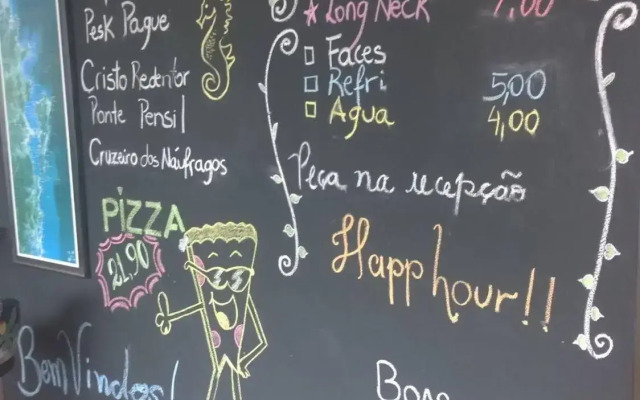 Pesk Pague
Cristo Redentor
Ponte Pensil
Cruzeiro dos Náufragos
PIZZA
21,90
Bem Vindos!
Long Neck 7,00
Faces
Refri 5,00
Agua 4,00
Peça na recepção
Happ hour!!
Boas